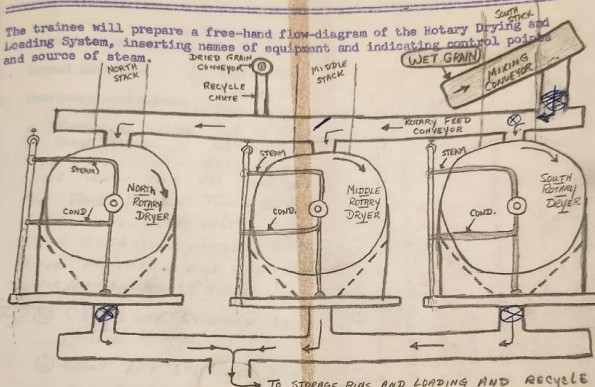 The trainee will prepare a free-hand flow-diagram of the Rotary Drying and
Loading System, inserting names of equipment and indicating control points
and source of steam.
SOUTH
STACK
NORTH
STACK
DRIED GRAIN
CONVEYOR
RECYCLE
CHUTE
MIDDLE
STACK
WET GRAIN
MIXING
CONVEYOR
ROTARY FEED
CONVEYOR
STEAM
COND.
NORTH
ROTARY
DRYER
STEAM
COND.
MIDDLE
ROTARY
DRYER
STEAM
COND.
SOUTH
ROTARY
DRYER
TO STORAGE BINS AND LOADING AND RECYCLE